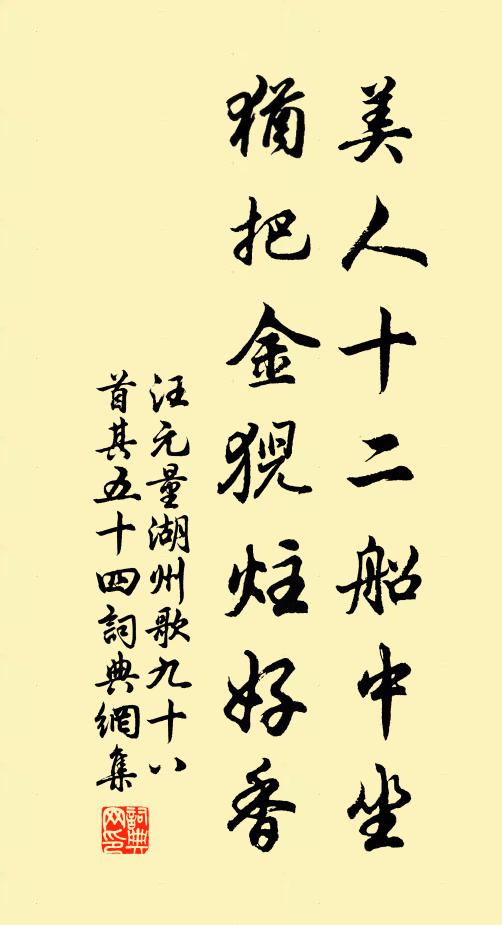 美人十二船中坐
猶把金猊炷好香
汪元量湖州歌九十八
首其五十四詞典網集
詞典
网印